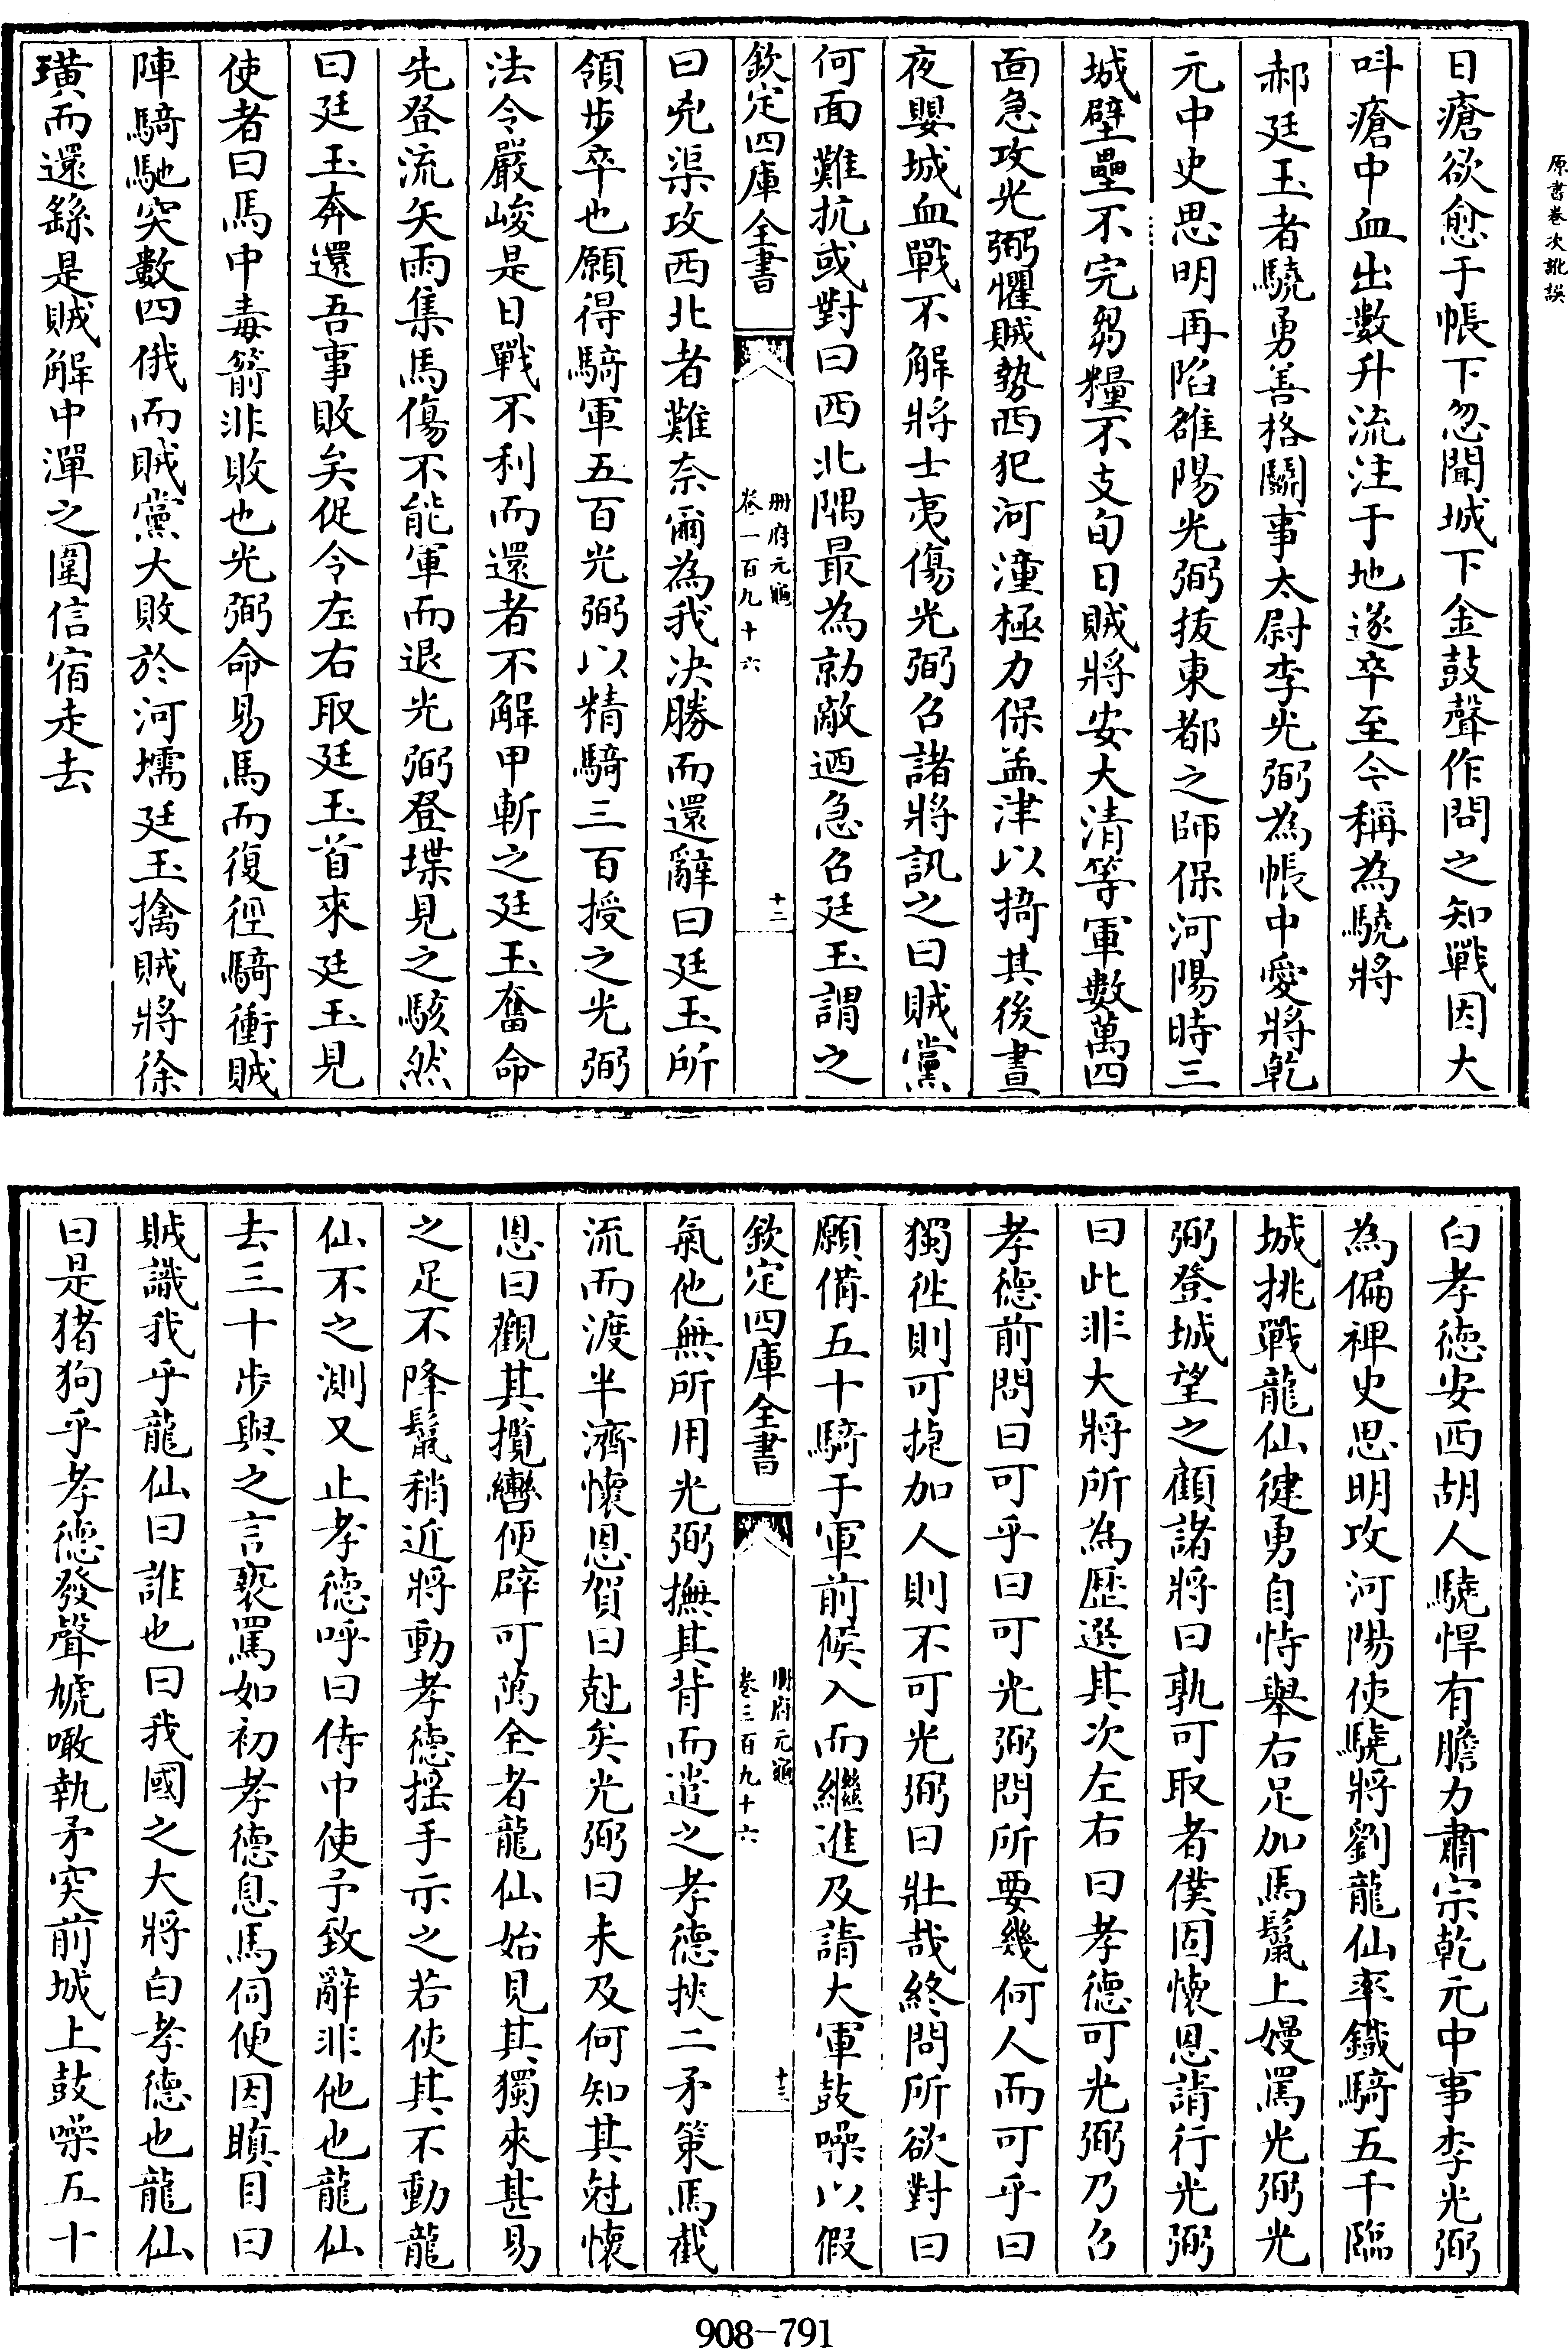 原書卷次訛誤
日瘡欲愈于帳下忽聞城下金鼓聲作問之知戰因大
呌瘡中血出數升流注于地遂卒至今稱為驍將
郝廷玉者驍勇善格鬬事太尉李光弼為帳中愛將乾
元中史思明再陷雒陽光弼拔東都之師保河陽時三
城壁壘不完芻糧不支旬日賊將安大清等軍數萬四
面急攻光弼懼賊勢西犯河潼極力保孟津以掎其後晝
夜嬰城血戰不解將士夷傷光弼召諸將訊之曰賊黨
何面難抗或對曰西北隅最為勍敵迺急召廷玉謂之
欽定四庫全書
冊府元龜
卷一百九十六
十二
曰兇渠攻西北者難奈爾為我決勝而還辭曰廷玉所
領步卒也願得騎軍五百光弼以精騎三百授之光弼
法令嚴峻是日戰不利而還者不解甲斬之廷玉奮命
先登流矢雨集馬傷不能軍而退光弼登堞見之駭然
曰廷玉奔還吾事敗矣促令左右取廷玉首來廷玉見
使者曰馬中毒箭非敗也光弼命易馬而復徑騎衝賊
陣騎馳突數四俄而賊黨大敗於河壖廷玉擒賊將徐
璜而還繇是賊解中潬之圍信宿走去
白孝德安西胡人驍悍有膽力肅宗乾元中事李光弼
為偏裨史思明攻河陽使驍將劉龍仙率鐵騎五千臨
城挑戰龍仙健勇自恃舉右足加馬鬛上嫚罵光弼光
弼登城望之顧諸將曰孰可取者僕固懷恩請行光弼
曰此非大將所為歷選其次左右曰孝德可光弼乃召
孝德前問曰可乎曰可光弼問所要幾何人而可乎曰
獨徃則可㨗加人則不可光弼曰壯哉終問所欲對曰
願備五十騎于軍前候入而繼進及請大軍鼓噪以假
欽定四庫全書
冊府元龜
卷三百九十六
十三
氣他無所用光弼撫其背而遣之孝德挾二矛策馬截
流而渡半濟懷恩賀曰尅矣光弼曰未及何知其尅懷
恩曰觀其攬轡便辟可萬全者龍仙始見其獨來甚易
之足不降鬛稍近將動孝德揺手示之若使其不動龍
仙不之測又止孝德呼曰侍中使予致辭非他也龍仙
去三十步與之言褻罵如初孝德息馬伺便因瞋目曰
賊識我乎龍仙曰誰也曰我國之大將白孝德也龍仙
曰是猪狗乎孝德發聲虓噉執矛突前城上鼓噪五十
908-791